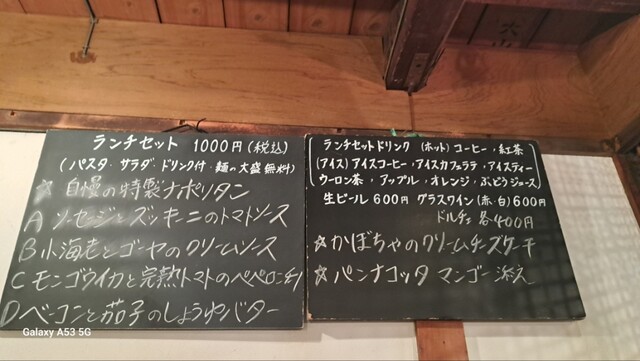 ランチセット 1000円(税込)
(パスタ・サラダ・ドリンク付・麺の大盛無料)
☆ 自慢の特製ナポリタン
A ソーセージとズッキーニのトマトソース
B 小海老とゴーヤのクリームソース
C モンゴウイカと完熟トマトのペペロンチーノ
D ベーコンと茄子のしょうゆバター
ランチセットドリンク (ホット)コーヒー・紅茶
(アイス)アイスコーヒー・アイスカフェラテ・アイスティー
ウーロン茶・アップル・オレンジ・ぶどうジュース
生ビール600円 グラスワイン(赤・白)600円
ドルチェ 各400円
☆かぼちゃのクリームチーズケーキ
☆パンナコッタ マンゴー添え
Galaxy A53 5G